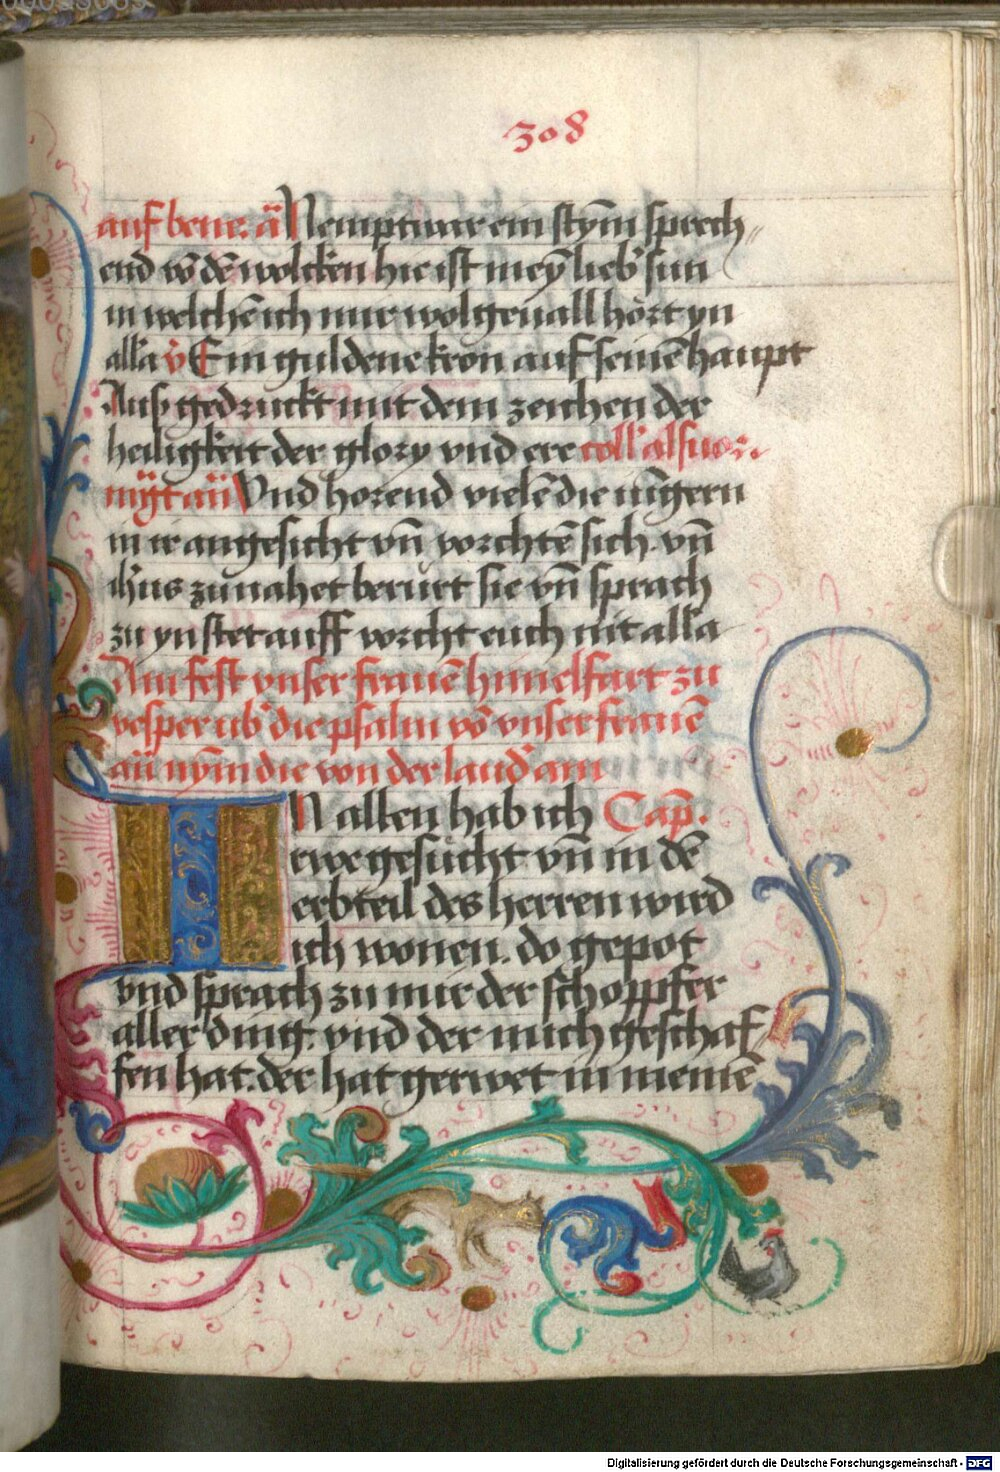 308
auf bene: añ Nempt war ein stym̄ sprech„
end võ dẽ wolcken hie ist mey̆ lieb' sun
in welchẽ ich mir wolgeuall hört yn
alla v̈ Ein guldene kron auf seinẽ haupt
Ausgedruckt mit dem zeichen der
heiligkeit der glory vnd ere coll' als uor.
mg̈t añ Vnd hörend vielẽ die iungern
in ir angesicht vñ vorchtẽ sich. vñ
ih'us zunahet berurt sie vñ sprach
zu yn stet auff vorcht euch nit alla
Am fest vnser frauẽ himelfart zu
vesper üb' die psalm võ vnser frauẽ
añ nym̄ die von der laud' am
IN allen hab ich Cap̃.
rwe gesucht vñ in dẽ
erbteil des herren wird
ich wonen. do gepot
vnd sprach zu mir der schöppfer
aller ding. vnd der mich geschaf„
fen hat. der hat gerwet in meinẽ
Digitalisierung gefördert durch die Deutsche Forschungsgemeinschaft - DFG